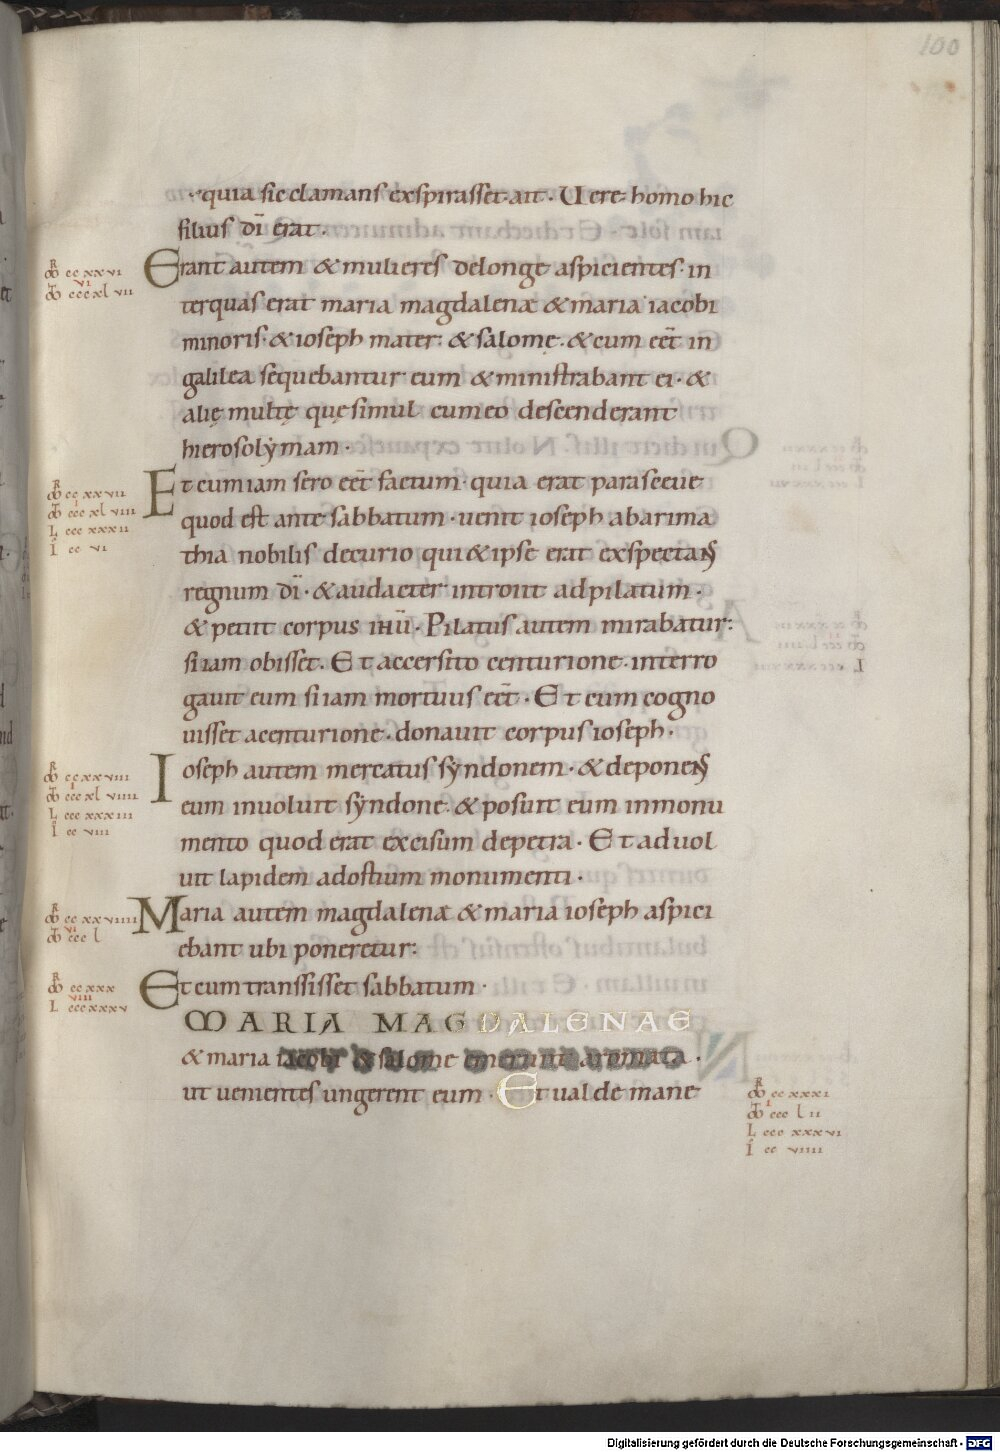 100
quia sic clamans exspirasset· ait· Uere homo hic
filius dī erat·
Erant autem & mulieres delonge aspicientes· in
terquas erat maria magdalenæ & maria iacobi
minoris· & ioseph mater· & salomę· & cum eēt in
galilea sequebantur eum & ministrabant ei· &
alię multę quę simul cumeo descenderant
hierosolymam·
R
m̄ cc xxvi
VI
m̄ cccxl vii
Et cumiam sero eēt factum· quia erat parasceue
quod est ante sabbatum· uenit ioseph abarima
thia nobilis decurio qui & ipse erat exspectans
regnum dī· & audacter introiit adpilatum·
& petiit corpus ihū· Pilatus autem mirabatur:
siiam obisset· Et accersito centurione· interro
gauit eum siiam mortuus eēt· Et cum cogno
uisset acenturione· donauit corpus ioseph·
R
m̄ cc xxvii
I
m̄ cccxl viii
L ccc xxxii
I cc vi
Ioseph autem mercatus syndonem· & deponens
eum inuoluit syndone· & posuit eum inmonu
mento quod erat excisum depetra· Et aduol
uit lapidem adostium monumenti·
R
m̄ cc xxviii
I
m̄ cccxl viiii
L ccc xxxiii
I cc viii
Maria autem magdalenæ & maria ioseph aspici
ebant ubi poneretur:
R
m̄ cc xxviiii
VI
m̄ ccc l
Et cum transsisset sabbatum·
MARIA MAGDALENAE
& maria iacobi & salome emerunt aromata·
ut uenientes ungerent eum· Et ualde mane
R
m̄ cc xxx
VIII
L ccc xxxv
R
m̄ cc xxxi
I
m̄ ccc l ii
L ccc xxxvi
I cc viiii
Digitalisierung gefördert durch die Deutsche Forschungsgemeinschaft - DFG